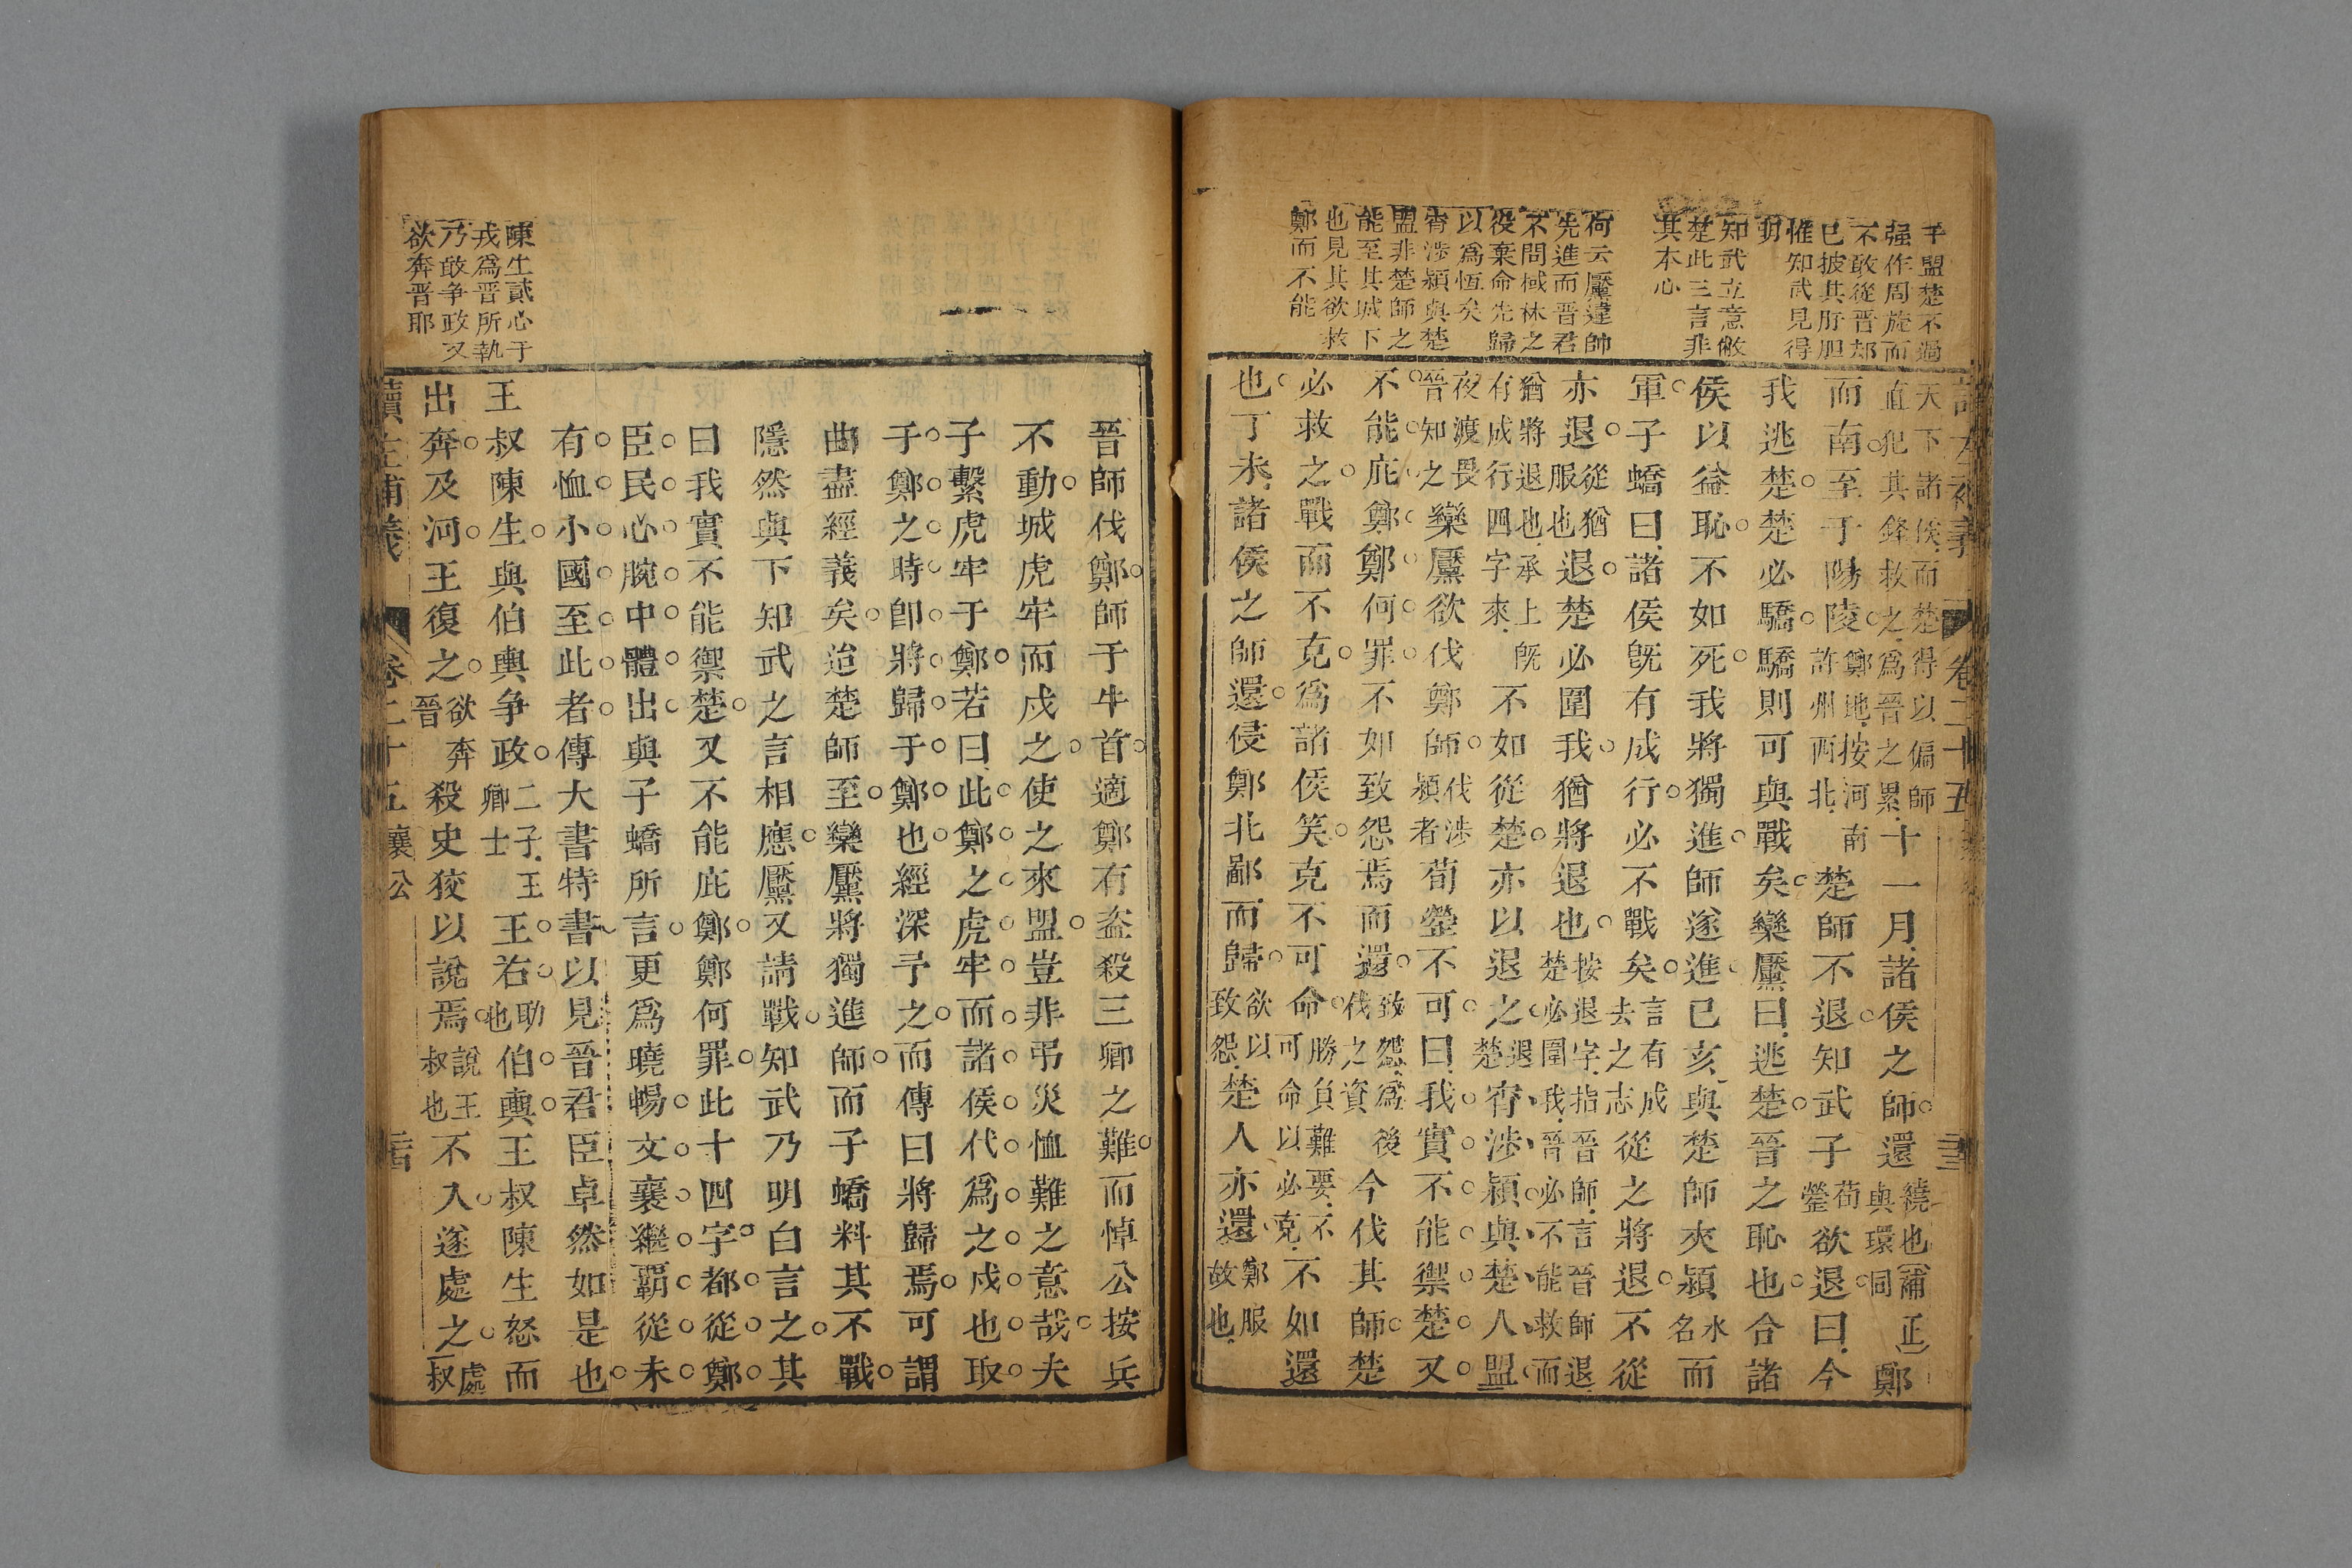 半盟楚不過
强作周旋而
不敢從晋却
已披其肝胆
惟知武見得
明
知武立意敝
楚此三言非
其本心
荷云黶違帥
先進而晋君
不問棫林之
役棄命先歸
以爲恆矣
宵涉潁與楚
盟非楚師之
能至其城下
也見其欲救
鄭而不能
卷二十五
天下諸侯而楚得以偏師
直犯其鋒救之爲晉之累
十一月諸侯之師還
繞也補正
與環同
鄭
而南至于陽陵
鄭地按河南
許州西北
楚師不退知武子
荀
罃
欲退曰今
我逃楚楚必驕驕則可與戰矣欒黶曰逃楚晉之恥也合諸
侯以益恥不如死我將獨進師遂進己亥與楚師夾潁
水
名
而
軍子蟜曰諸侯旣有成行必不戰矣
言有成
去之志
從之將退不從
亦退
從猶
服也
退楚必圍我猶將退也
按退字指晉師言晉師退
楚必圍我晉必不能救而
猶將退也承上旣
有成行四字來
不如從楚亦以退之
退
楚
宵涉潁與楚人盟
夜渡畏
晉知之
欒黶欲伐鄭師
伐涉
潁者
荀罃不可曰我實不能禦楚又
不能庇鄭鄭何罪不如致怨焉而還
致怨爲後
伐之資
今伐其師楚
必救之戰而不克爲諸侯笑克不可命
勝負難要不
可命以必克
不如還
也丁未諸侯之師還侵鄭北鄙而歸
欲以
致怨
楚人亦還
鄭服
故也
晉師伐鄭師于牛首適鄭有盗殺三卿之難而悼公按兵
不動城虎牢而戍之使之來盟豈非弔災恤難之意哉夫
子繫虎牢于鄭若曰此鄭之虎牢而諸侯代爲之戍也取
于鄭之時卽將歸于鄭也經深予之而傳曰將歸焉可謂
曲盡經義矣迨楚師至欒黶將獨進師而子蟜料其不戰
隱然與下知武之言相應黶又請戰知武乃明白言之其
曰我實不能禦楚又不能庇鄭鄭何罪此十四字都從鄭
臣民心腕中體出與子蟜所言更爲曉暢文襄繼覇從未
有恤小國至此者傳大書特書以見晉君臣卓然如是也
王叔陳生與伯輿争政
二子王
卿士
王右
助
也
伯輿王叔陳生怒而
出奔及河王復之
欲奔
晉
殺史狡以說焉
說王
叔也
不入遂處之
處
叔
陳生貳心于
戎爲晋所執
乃敢争政又
欲奔晋耶
讀左補義
卷二十五
襄公